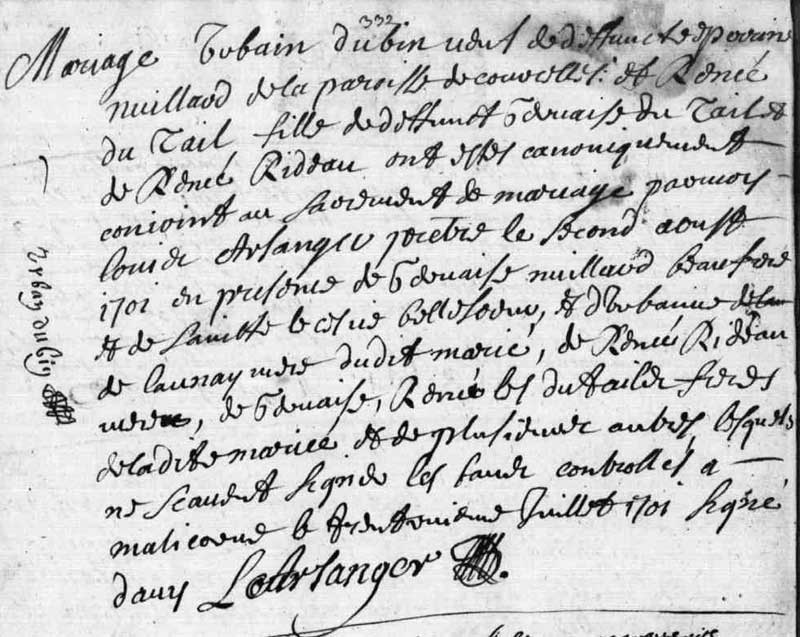 332
Mariage Vrbain dubin veuf de deffuncte perrine
nuillard de la paroisse de courcelles: et René
du Tail fille de deffunct Gervaise du Tail et
de René Rideau ont estes canoniquement
conioint au sacrement de mariage par mois
Louis Arlanger prestre le second aoust
1701 en presence de Gervaise nuillard beaufrere
et de belle soeur, et d'urbanne
de launay mere dudit marié, de René Rideau
mere, de Gervaise, René les du tails freres
de la dite mariée et de plusieurs autres lesquels
ne scavent signer les bans controllés a
malicorne le trentunieme Juillet 1701 signé
davy L Arlanger
Vrbay dubin